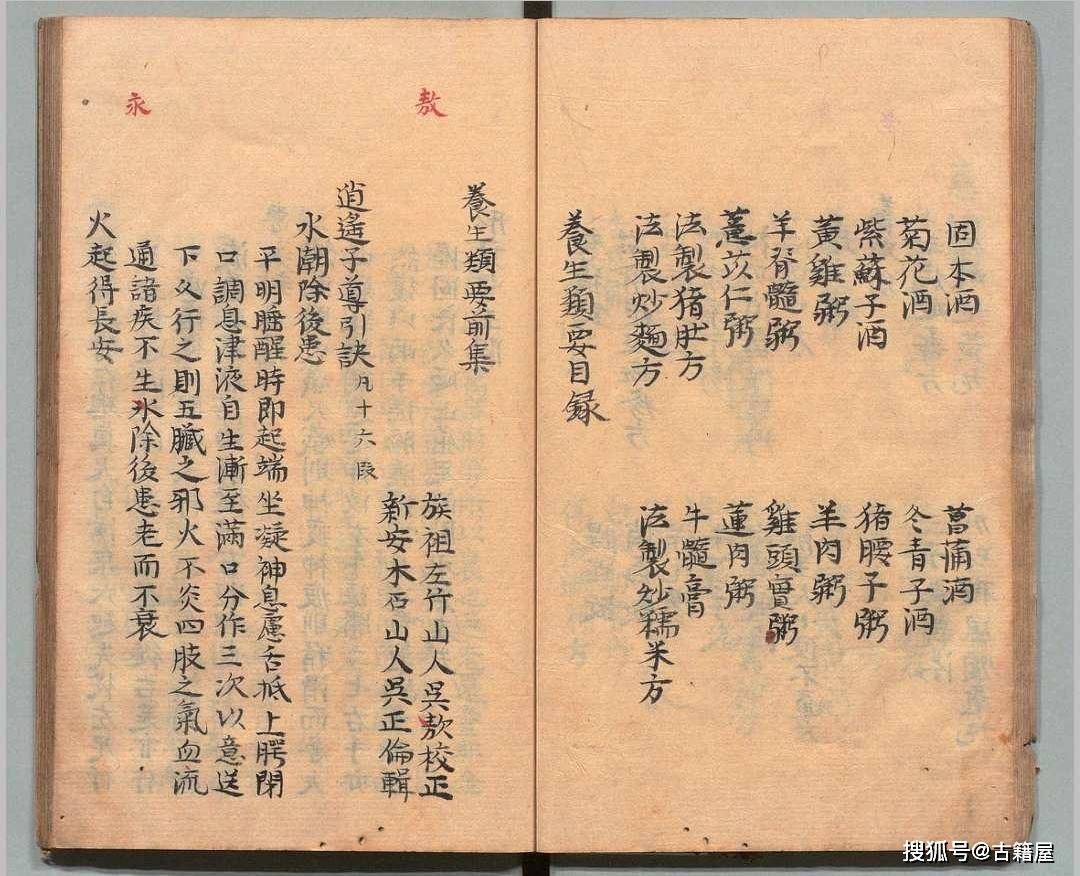 固本酒 菖蒲酒
菊花酒 冬青子酒
紫蘇子酒 猪腰子粥
黃雞粥 羊肉粥
羊脊髓粥 雞頭實粥
薏苡仁粥 蓮肉粥
法製猪肚方 牛髓膏
法製炒麵方 法製炒糯米方
養生類要目録
養生類要前集
敖
族祖左竹山人吳敖校正
新安木石山人吳正倫輯
逍遙子導引訣 凡十六段
水潮除後患
平明睡醒時即起端坐凝神息慮舌抵上腭閉
口調息津液自生漸至滿口分作三次以意送
下久行之則五臟之邪火不炎四肢之氣血流
永
通諸疾不生氷除後患老而不衰
火起得長安
搜狐号@古籍屋